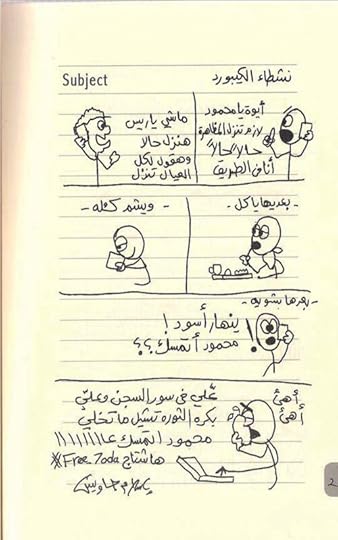 Subject
نشطاء الكيبورد
أيوة يا محمود
لازم تنزل المظاهرة
حالاً حالاً
أنا في الطريق
ماشي ياريس
هنزل حالا
وهقول لكل
العيال تنزل
- بعديها ياكل -
- ويشم كفله -
- بعدها بشويه -
ينهار أسود!
محمود أتمسك؟؟!
أهئ
أهئ
علّي في سور السجن وعلّي
بكره الثوره تشيل ماتخلي
محمود اتمسك عااااااااا
هاشتاج Free_Zoda#
2